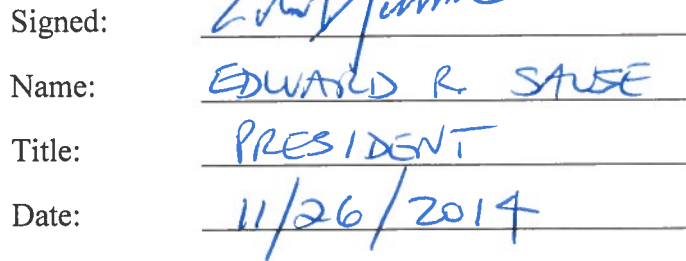 Signed:
Name: EDWARD R. SAUSE
Title: PRESIDENT
Date: 11/26/2014